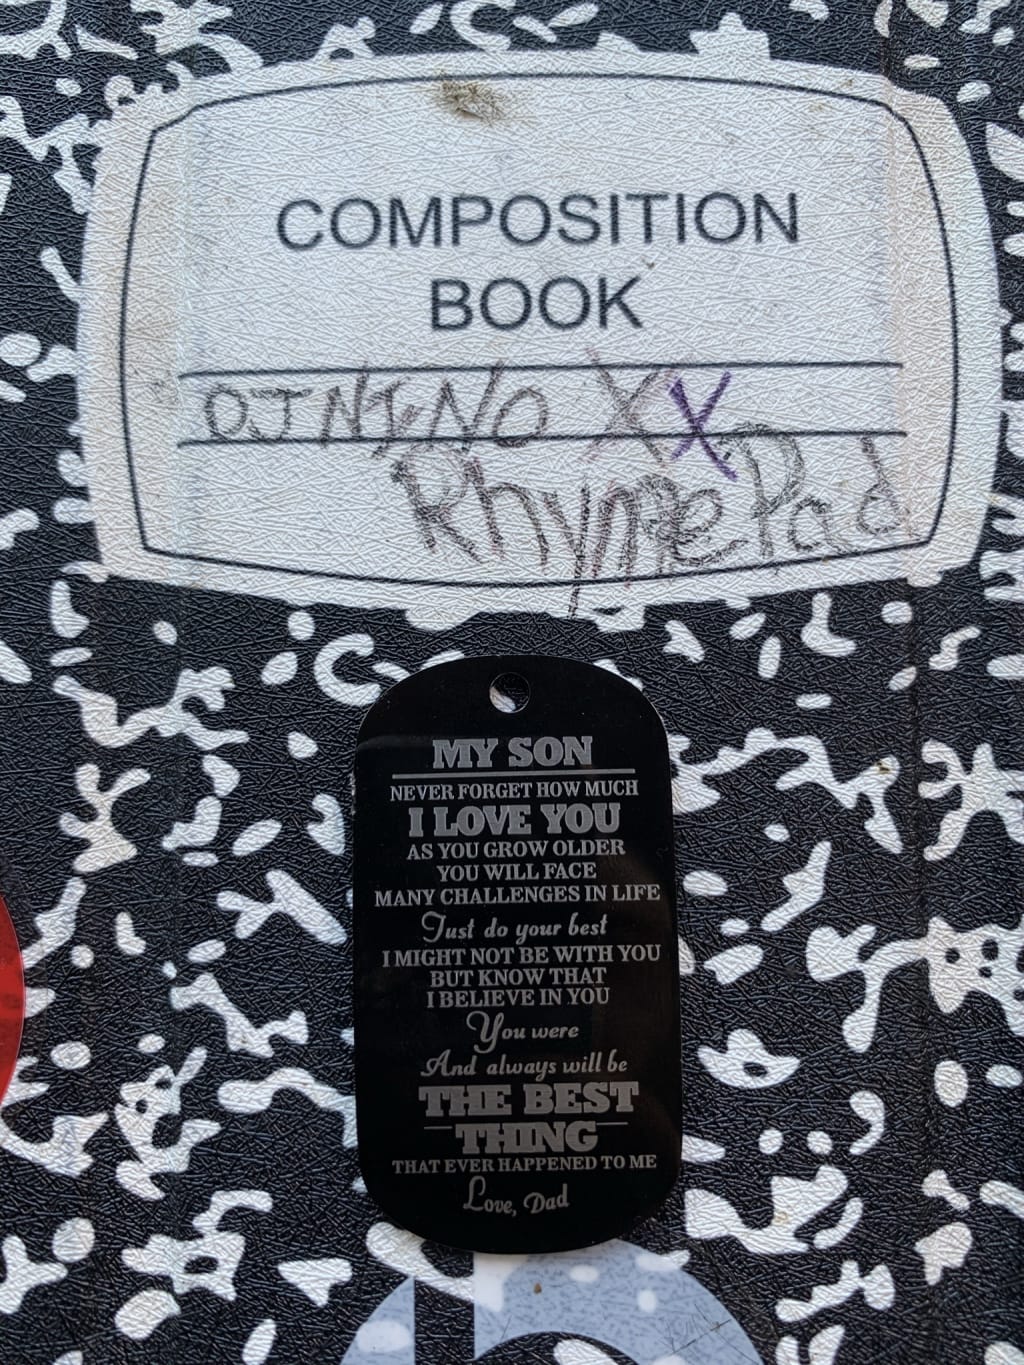 COMPOSITION
BOOK
DJ NINO XX
Rhyme Pad
MY SON
NEVER FORGET HOW MUCH
I LOVE YOU
AS YOU GROW OLDER
YOU WILL FACE
MANY CHALLENGES IN LIFE
Just do your best
I MIGHT NOT BE WITH YOU
BUT KNOW THAT
I BELIEVE IN YOU
You were
And always will be
THE BEST
THING
THAT EVER HAPPENED TO ME
Love, Dad